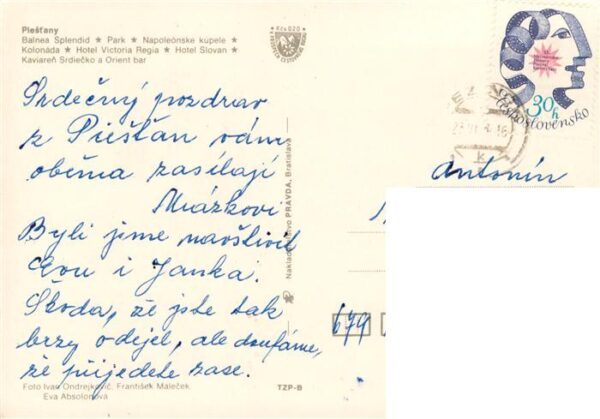 Piešťany
Balnea Splendid ★ Park ★ Napoleónske kúpele ★
Kolonáda ★ Hotel Victoria Regia ★ Hotel Slovan ★
Kaviareň Srdiečko a Orient bar
Kčs 0,20
30h
Československo
Srdečný pozdrav
z Piešťan vám
oběma zasílají
Mrázkovi
Byli jsme navštívit
Evu i Janka.
Škoda, že jste tak
brzy odejel, ale doufáme,
že přijedete zase.
Antonín
679
Nakladateľstvo PRAVDA, Bratislava
Foto Ivan Ondrejkovič, František Maleček,
Eva Absolonová
TZP-B